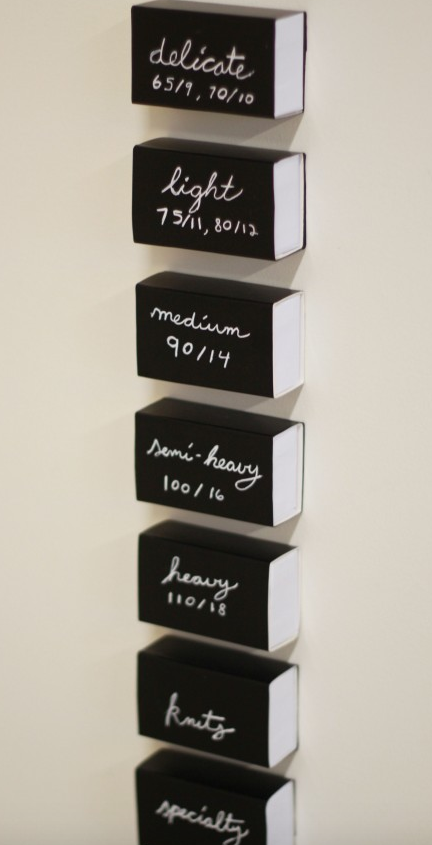 delicate
65/9, 70/10
light
75/11, 80/12
medium
90/14
semi-heavy
100/16
heavy
110/18
knits
specialty